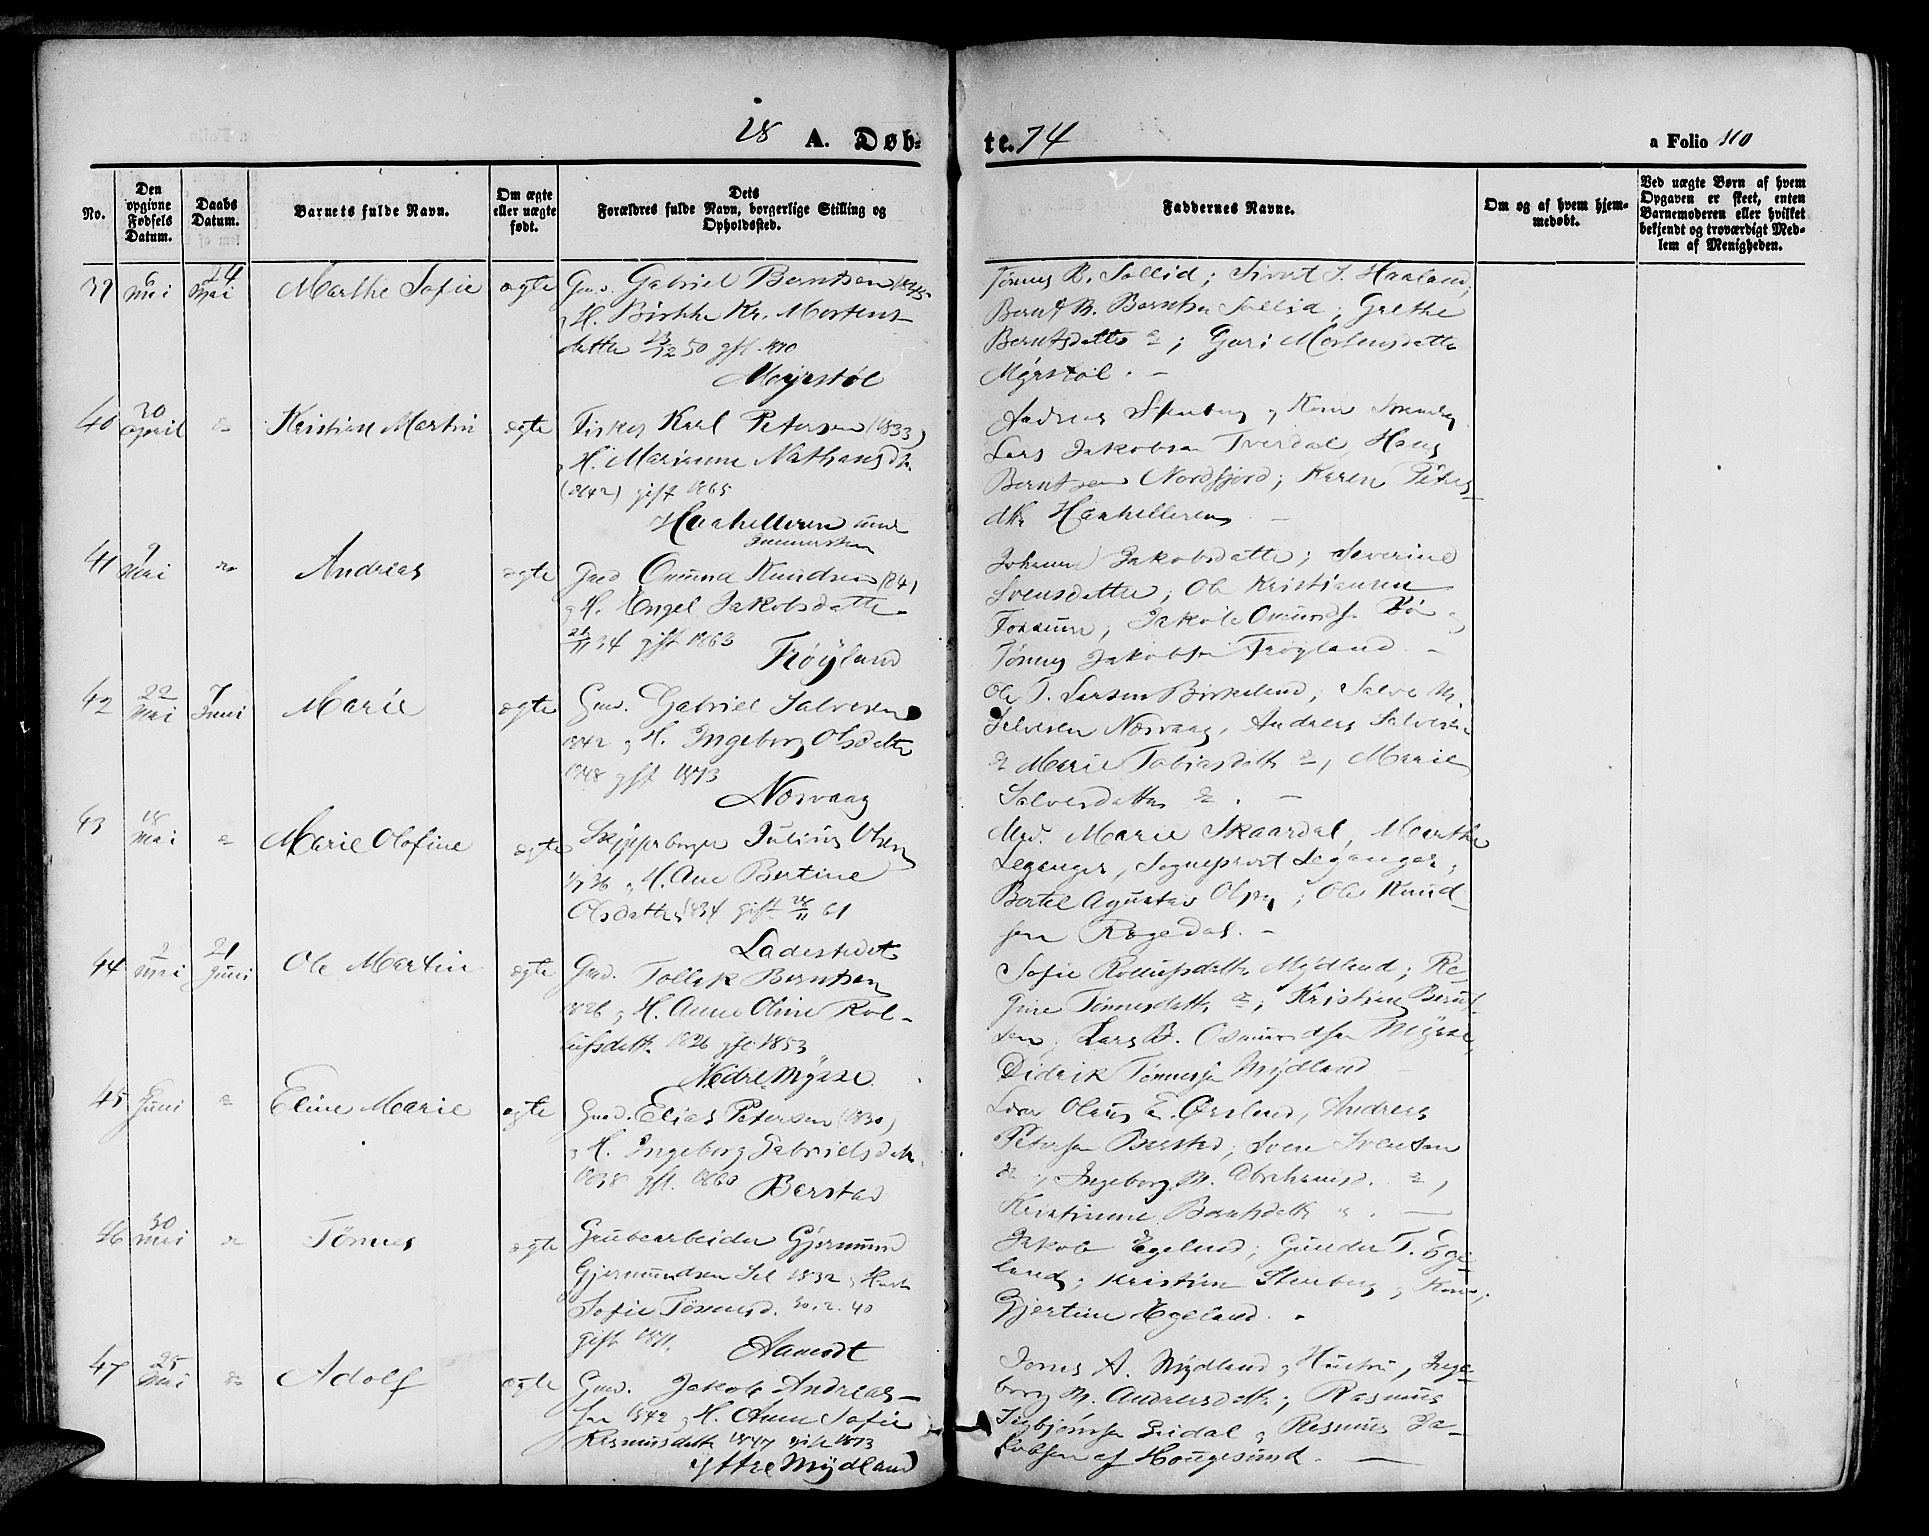 18 A. Døb-
te. 74
a Folio 110
No.
Den opgivne Fødsels Datum.
Daabs Datum.
Barnets fulde Navn.
Om ægte eller uægte født.
Dets Forældres fulde Navn, borgerlige Stilling og Opholdssted.
Faddernes Navne.
Om og af hvem hjemmedøbt.
Ved uægte Børn af hvem Opgaven er skeet, enten Barnemoderen eller hvilket bekjendt og troværdigt Medlem af Menigheden.
39 6 Mai 24 Mai Marthe Sofie ægte Gmd. Gabriel Berntsen 1845
H. Birthe Kr. Mortens-
datter 50 gft. 1870
Møjrstøl
Tønnes B. Sollid; Sivert S. Haaland;
Bernt B. Berntsen Sollid; Grethe
Berntsdatter; Guri Mortensdatter
Myrstøl. -
40 30 April Kristian Martin ægte Fisker Karl Petersen (1833)
H. Marianne Nathansdtr.
(1842) gift 1865
Haahelleren
Andreas Stenberg og Kone
Lars Jakobsen Tverdal, Hans
Berntsen Nordfjord; Karen Peters-
dtr Haahelleren -
41 9 Mai Andreas ægte Gmd Omund Knudsen 1841
og H. Engel Jakobsdatter
34 gift 1863
Frøyland
Jakobsdatter; Severine
Svensdatter; Ole Kristiansen
Fossum; Jakob Omundsen
Tønnes Jakobsen Frøyland -
42 22 Mai 7 Juni Marie ægte Gmd. Gabriel Salvesen
1842 og H. Ingeborg Olsdatter
1848 gft 1873
Nosvaag
Ole T. Larsen Birkeland; Salve M.
Salvesen Nosvaag, Andreas Salvesen
Marie Tobiasdatter, Marie
Salvesdatter. -
43 18 Mai Marie Olofine ægte Skipperborger Julius Olsen
36, H. Ane Bertine
Olsdatter 1834 gift 28/11 61
Ladestedet
Md. Marie Skaardal, Marthe
Leganger, Sogneprest Leganger;
Bertel Agustas Olsen; Ole Knud-
sen Rægedal. -
44 9 Mai 21 Juni Ole Martin ægte Gmd. Tollak Berntsen
1826 og H. Anne Oline Rol-
ufsdatt. 1826 gft 1853
Nedre Mysse.
Sofie Rolufsdatter Mydland; Re-
gine Tønnesdatter; Kristian Bernt-
sen; Lars B. Osmundsen Mysse,
Didrik Tønnesen Mydland
45 Juni Eline Marie ægte Gmd. Elias Petersen (1830)
H. Ingeborg Gabrielsdatr.
1838 gft. 1860 Berstad
Olaus E. Ørsland, Andreas
Petersen Berstad; Sven Svensen
Ingeborg M. Abrahamsd.
Kristianne Berntsdatter -
46 30 Mai Tønnes ægte Grubearbeider Gjermund
Gjermundsen Sel 1832 og Hustr
Sofie Tønnesd. 30.2.40
gift 1871. Aamodt
Jakob Egeland; Gunder T. Ege-
land; Kristian Stenberg og Kone;
Gjertine Egeland.
47 25 Mai Adolf ægte Gmd. Jakob Andreas-
sen 1842 og H. Anne Sofie
Rasmusdatter 1847 gift 1873
Yttre Mydland
Jonas A. Mydland og Hustru, Inge-
borg M. Andreasdatter; Rasmus
Sigbjørnsen Eidal og Rasmus Ja-
kobsen af Hougesund. -